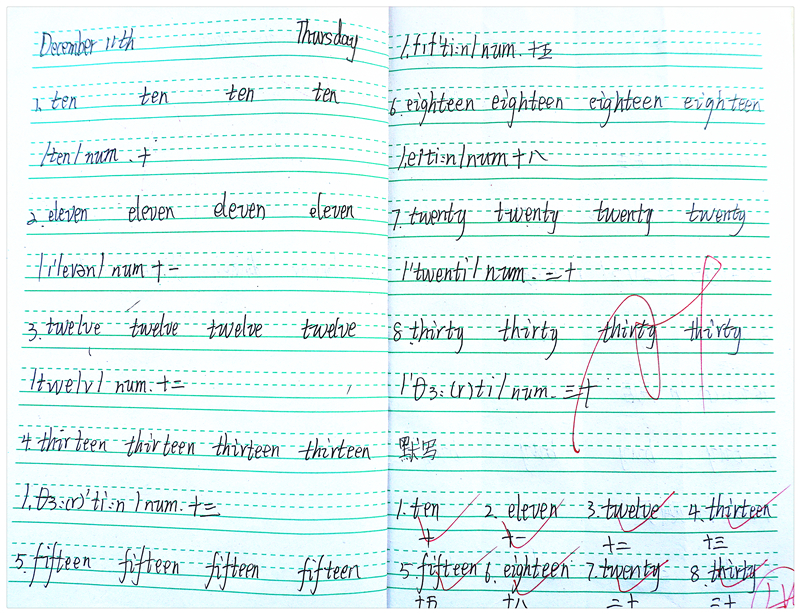 December 11th Thursday
1. ten ten ten ten
/ten/ num. 十
2. eleven eleven eleven eleven
/i'levən/ num 十一
3. twelve twelve twelve twelve
/twelv/ num. 十二
4. thirteen thirteen thirteen thirteen
/,θɜ:(r)'ti:n/ num. 十三
5. fifteen fifteen fifteen fifteen
/,fif'ti:n/ num. 十五
6. eighteen eighteen eighteen eighteen
/,ei'ti:n/ num 十八
7. twenty twenty twenty twenty
/'twenti/ num. 二十
8. thirty thirty thirty thirty
/'θɜ:(r)ti/ num. 三十
默写
1. ten 2. eleven 3. twelve 4. thirteen
十 十一 十二 十三
5. fifteen 6. eighteen 7. twenty 8. thirty
十五 十八 二十 三十